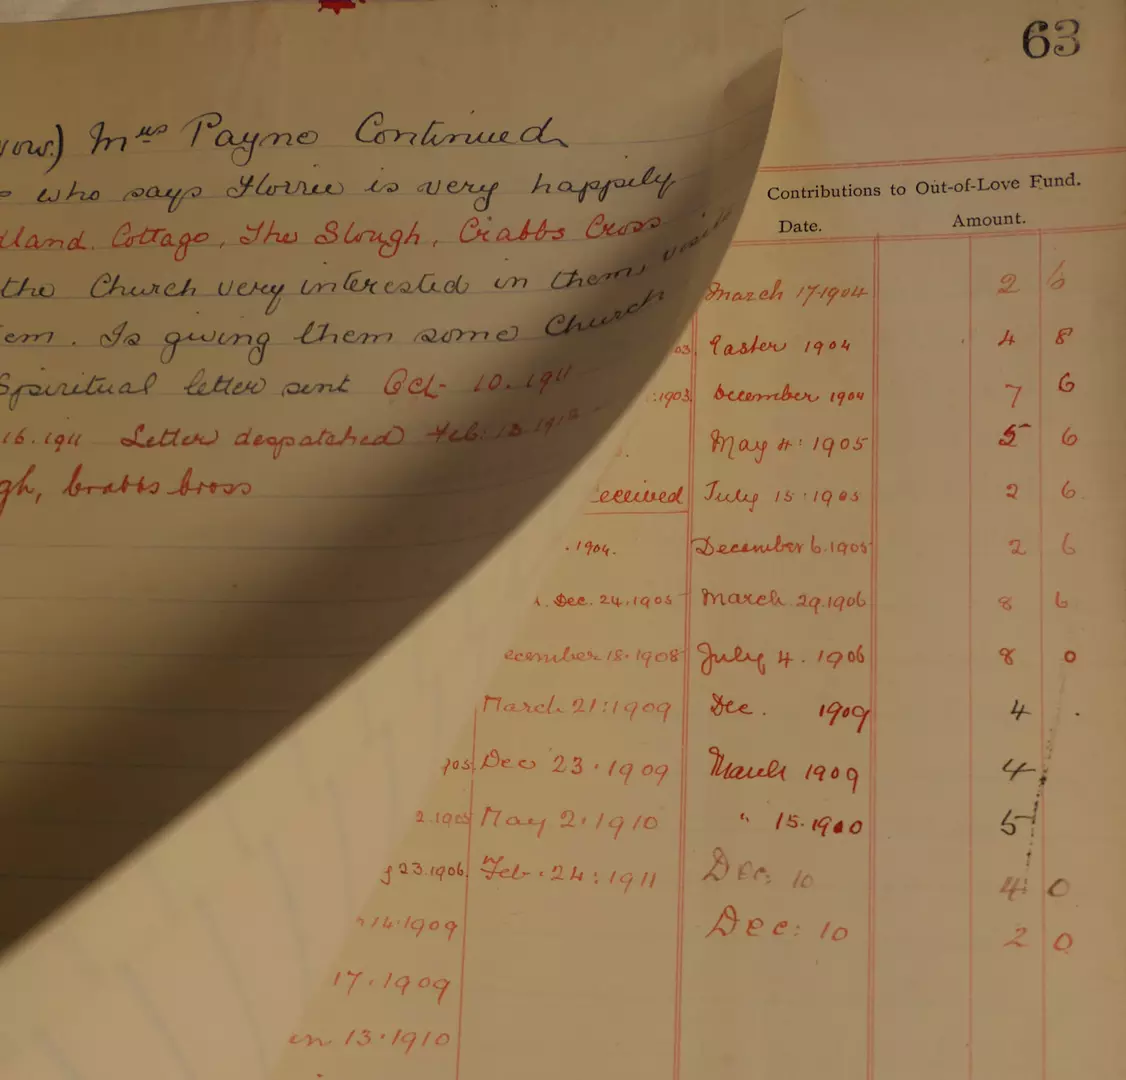 63
Mrs Payne Continued
who says Florrie is very happily
Cottage, The Slough, Crabbs Cross
the Church very interested in them, visit
em. Is giving them some Church
Spiritual letter sent Oct- 10. 1911
16. 1911 Letter despatched Feb: 13 1912
gh, Crabbs Cross
Contributions to Out-of-Love Fund.
Date. Amount.
March 17 1904 2 6
03. Easter 1904 4 8
:1903. December 1904 7 6
May 4: 1905 5 6
eceived July 15. 1905 2 6
. 1904. December 6. 1905 2 6
Dec. 24. 1905 March 29. 1906 8 6
ecember 18. 1908 July 4. 1906 8 0
March 21: 1909 Dec. 1909 4 .
Dec 23. 1909 March 1909 4
May 2. 1910 " 15. 1910 5
23. 1906. Feb. 24: 1911 Dec: 10 4 0
14. 1909 Dec: 10 2 0
17. 1909
13. 1910